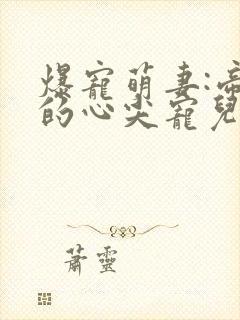 爆寵萌妻:帝
的心尖寵兒
蕭靈